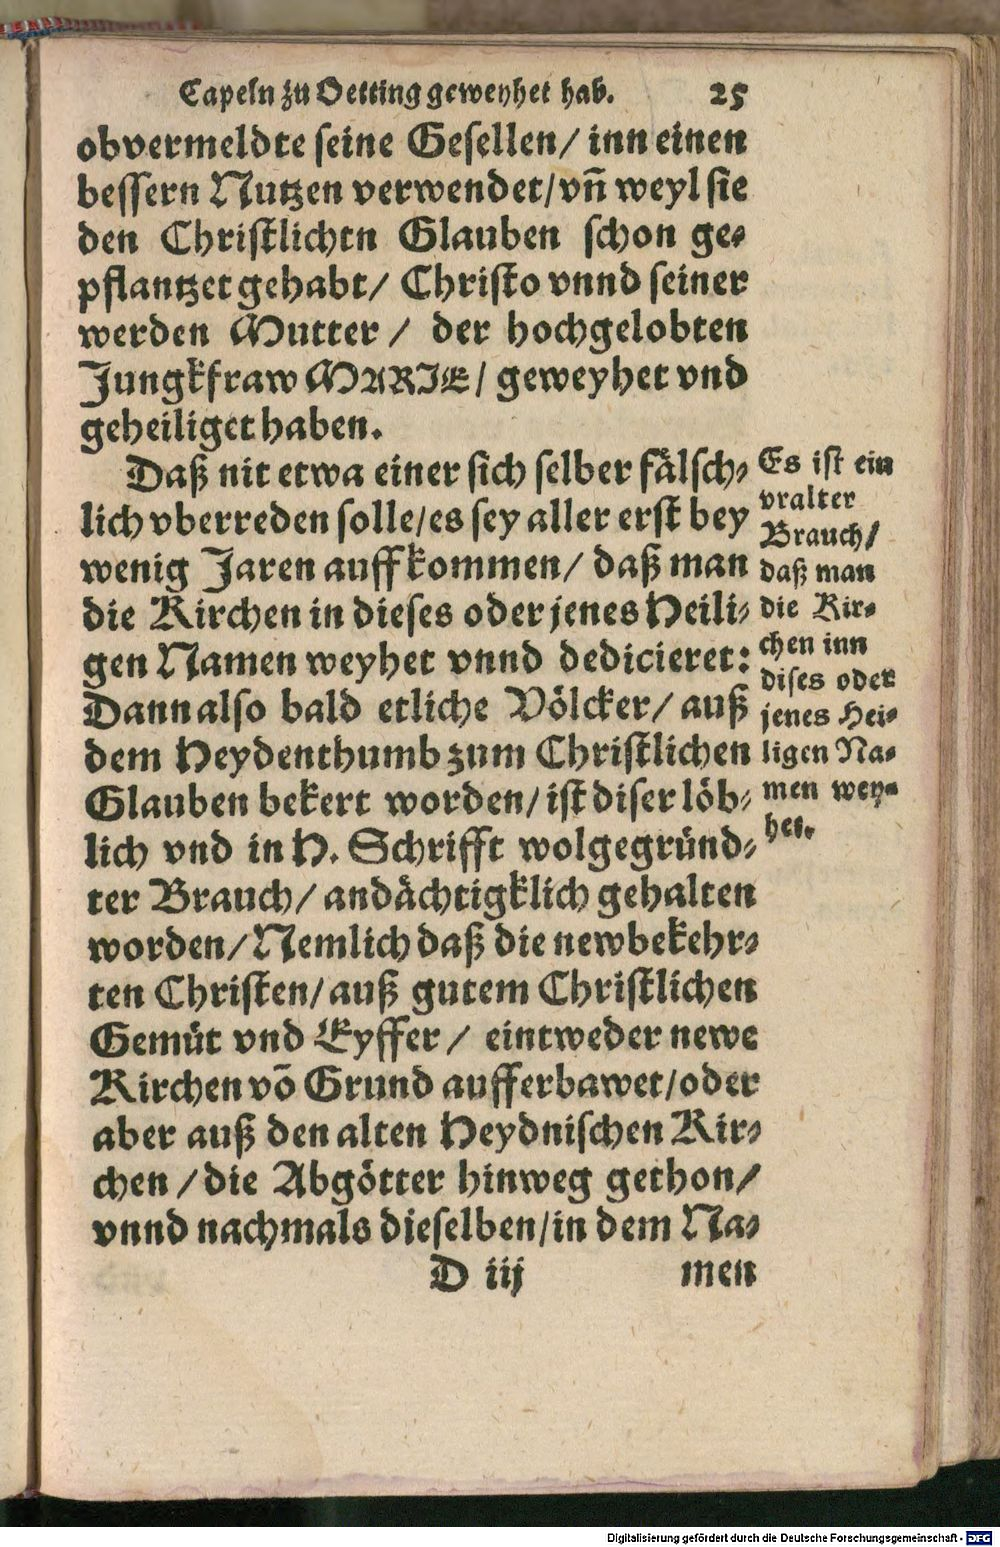 Capeln zu Oetting geweyhet hab. 25
obvermeldte seine Gesellen/ inn einen
bessern Nutzen verwendet/ vñ weyl sie
den Christlichen Glauben schon ge-
pflantzet gehabt/ Christo vnnd seiner
werden Mutter / der hochgelobten
Jungkfraw MARIÆ/ geweyhet vnd
geheiliget haben.
Daß nit etwa einer sich selber fälsch-
lich vberreden solle/ es sey aller erst bey
wenig Jaren auffkommen/ daß man
die Kirchen in dieses oder jenes Heili-
gen Namen weyhet vnnd dedicieret:
Dann also bald etliche Völcker/ auß
dem Heydenthumb zum Christlichen
Glauben bekert worden/ ist diser löb-
lich vnd in H. Schrifft wolgegründ-
ter Brauch/ andächtigklich gehalten
worden/ Nemlich daß die newbekehr-
ten Christen/ auß gutem Christlichen
Gemüt vnd Eyffer / eintweder newe
Kirchen võ Grund aufferbawet/ oder
aber auß den alten Heydnischen Kir-
chen / die Abgötter hinweg gethon/
vnnd nachmals dieselben/ in dem Na-
D iij men
Es ist ein
vralter
Brauch/
daß man
die Kir-
chen inn
dises oder
jenes Hei-
ligen Na-
men wey-
het.
Digitalisierung gefördert durch die Deutsche Forschungsgemeinschaft - DFG